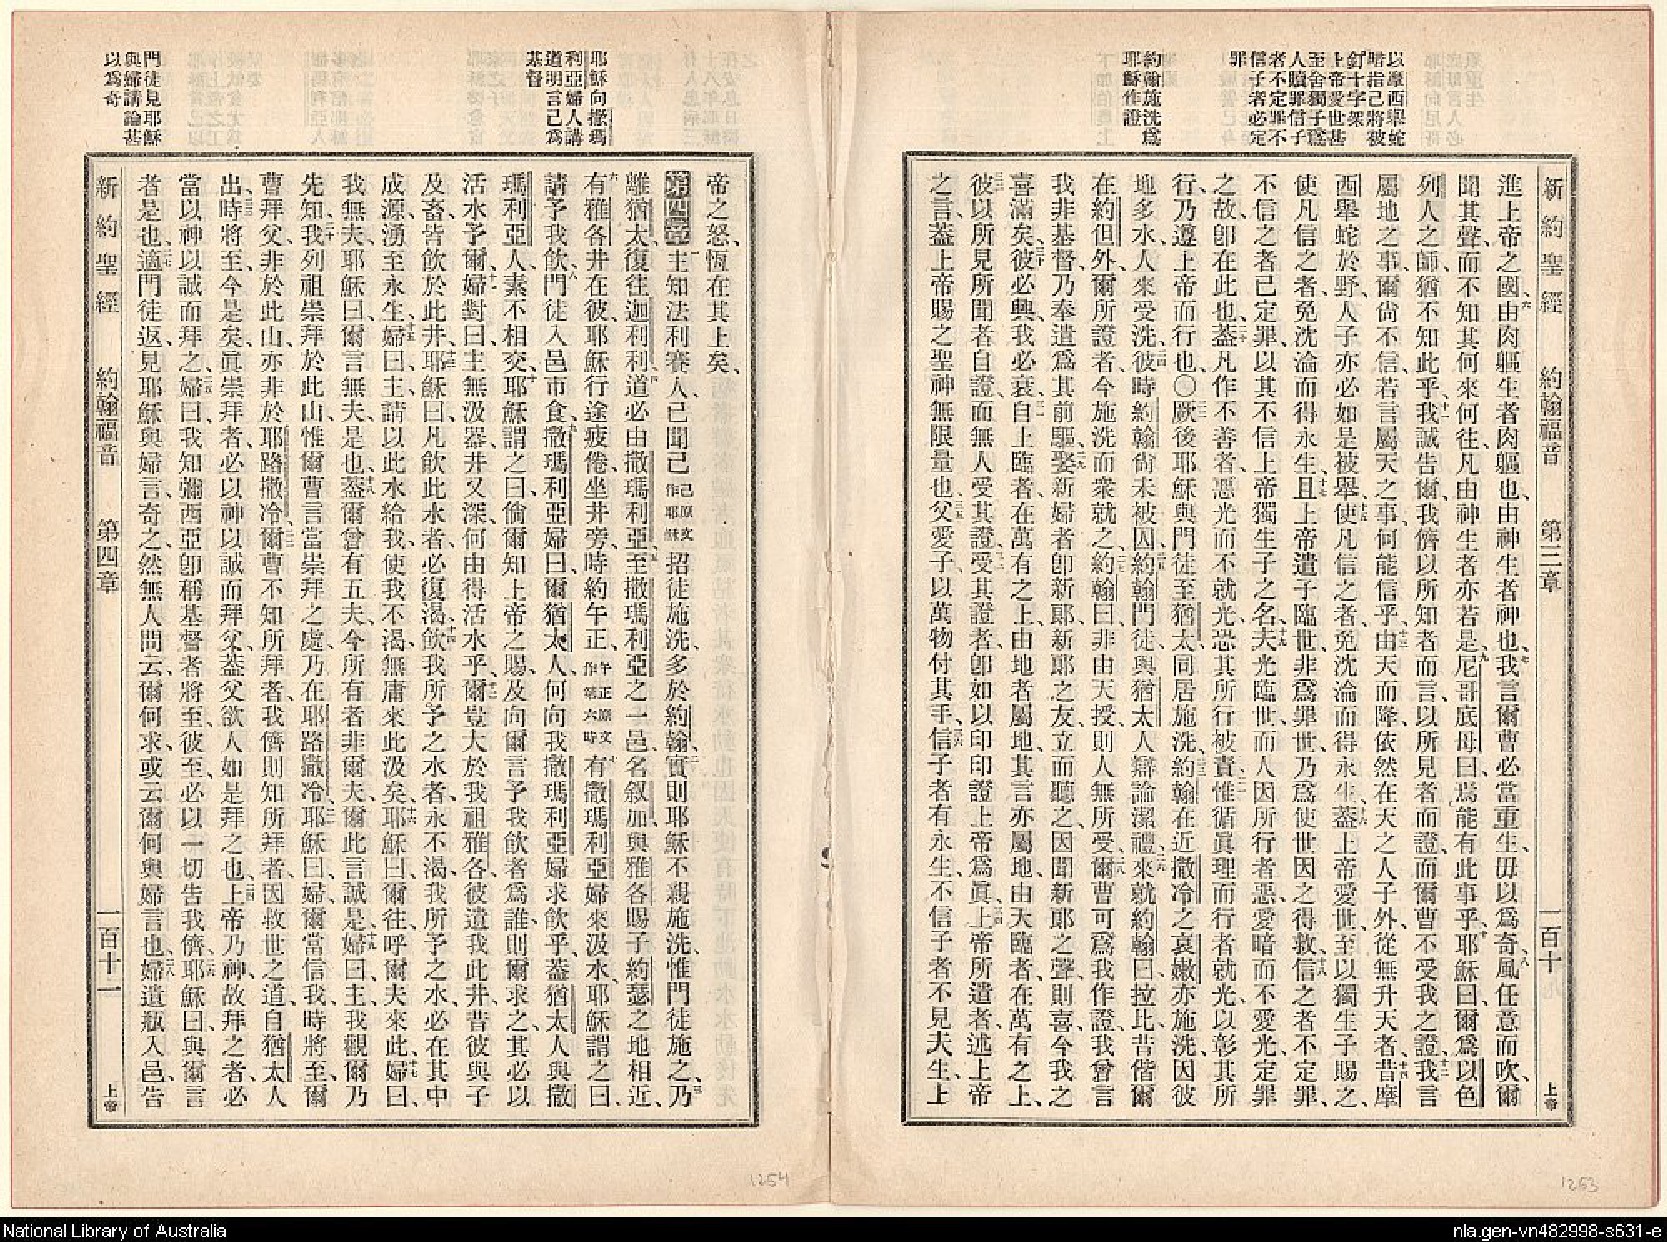 以摩西舉蛇
暗指己將被
釘十字架
上帝愛世甚
至舍獨子爲
人贖罪信子
者不定罪不
信子者必定
罪
約翰施洗爲
耶穌作證
新約聖經 約翰福音 第三章 上帝
進上帝之國、由肉軀生者肉軀也、由神生者神也、我言爾曹必當重生、毋以爲奇、風任意而吹、爾
聞其聲、而不知其何來何往、凡由神生者亦若是、尼哥底母曰、焉能有此事乎、耶穌曰、爾爲以色
列人之師、猶不知此乎、我誠告爾、我儕以所知者而言、以所見者而證、而爾曹不受我之證、我言
屬地之事、爾尙不信、若言屬天之事、何能信乎、由天而降、依然在天之人子外、從無升天者、昔摩
西舉蛇於野、人子亦必如是被舉、使凡信之者、免沈淪而得永生、蓋上帝愛世、至以獨生子賜之、
使凡信之者、免沈淪而得永生、且上帝遣子臨世、非爲罪世、乃爲使世因之得救、信之者不定罪、
不信之者已定罪、以其不信上帝獨生子之名、夫光臨世、而人因所行者惡、愛暗而不愛光、定罪
之故、卽在此也、蓋凡作不善者、惡光而不就光、恐其所行被責、惟循眞理而行者就光、以彰其所
行、乃遵上帝而行也、〇厥後耶穌與門徒至猶太、同居施洗、約翰在近撒冷之哀嫩亦施洗、因彼
地多水、人來受洗、彼時約翰尙未被囚、約翰門徒與猶太人辯論潔禮、來就約翰曰、拉比、昔偕爾
在約但外、爾所證者、今施洗而衆就之、約翰曰、非由天授、則人無所受、爾曹可爲我作證、我曾言
我非基督、乃奉遣爲其前驅、娶新婦者、卽新郞、新郞之友、立而聽之、因聞新郞之聲則喜、今我之
喜滿矣、彼必興、我必衰、自上臨者、在萬有之上、由地者屬地、其言亦屬地、由天臨者、在萬有之上、
彼以所見所聞者自證、而無人受其證、受其證者、卽如以印印證上帝爲眞、上帝所遣者、述上帝
之言、蓋上帝賜之聖神無限量也、父愛子、以萬物付其手、信子者有永生、不信子者不見夫生、上
1253
耶穌向撒瑪
利亞婦人講
道明言己爲
基督
門徒見耶穌
與婦講論甚
以爲奇
帝之怒、恆在其上矣、
第四章 主知法利賽人已聞己己原文作耶穌招徒施洗、多於約翰、實則耶穌不親施洗、惟門徒施之、乃
離猶太、復往迦利利、道必由撒瑪利亞、至撒瑪利亞之一邑、名敘加、與雅各賜子約瑟之地相近、
有雅各井在彼、耶穌行途疲倦、坐井旁、時約午正、午正原文作第六時有撒瑪利亞婦來汲水、耶穌謂之曰、
請予我飲、門徒入邑市食、撒瑪利亞婦曰、爾猶太人、何向我撒瑪利亞婦求飲乎、蓋猶太人與撒
瑪利亞人素不相交、耶穌謂之曰、倘爾知上帝之賜、及向爾言予我飲者爲誰、則爾求之、其必以
活水予爾、婦對曰、主無汲器、井又深、何由得活水乎、爾豈大於我祖雅各、彼遺我此井、昔彼與子
及畜、皆飲於此井、耶穌曰、凡飲此水者必復渴、飲我所予之水者永不渴、我所予之水、必在其中
成源、湧至永生、婦曰、主、請以此水給我、使我不渴、無庸來此汲矣、耶穌曰、爾往呼爾夫來此、婦曰、
我無夫、耶穌曰、爾言無夫、是也、蓋爾曾有五夫、今所有者非爾夫、爾此言誠是、婦曰、主、我觀爾乃
先知、我列祖崇拜於此山、惟爾曹言當崇拜之處、乃在耶路撒冷、耶穌曰、婦、爾當信我、時將至、爾
曹拜父、非於此山、亦非於耶路撒冷、爾曹不知所拜者、我儕則知所拜者、因救世之道、自猶太人
出、時將至、今是矣、眞崇拜者、必以神以誠而拜父、蓋父欲人如是拜之也、上帝乃神、故拜之者、必
當以神以誠而拜之、婦曰、我知彌西亞卽稱基督者將至、彼至、必以一切告我儕、耶穌曰、與爾言
者是也、適門徒返、見耶穌與婦言、奇之、然無人問云、爾何求、或云、爾何與婦言也、婦遺瓶入邑、告
新約聖經 約翰福音 第四章 一百十一 上帝
1254
National Library of Australia
nla.gen-vn482998-s631-e